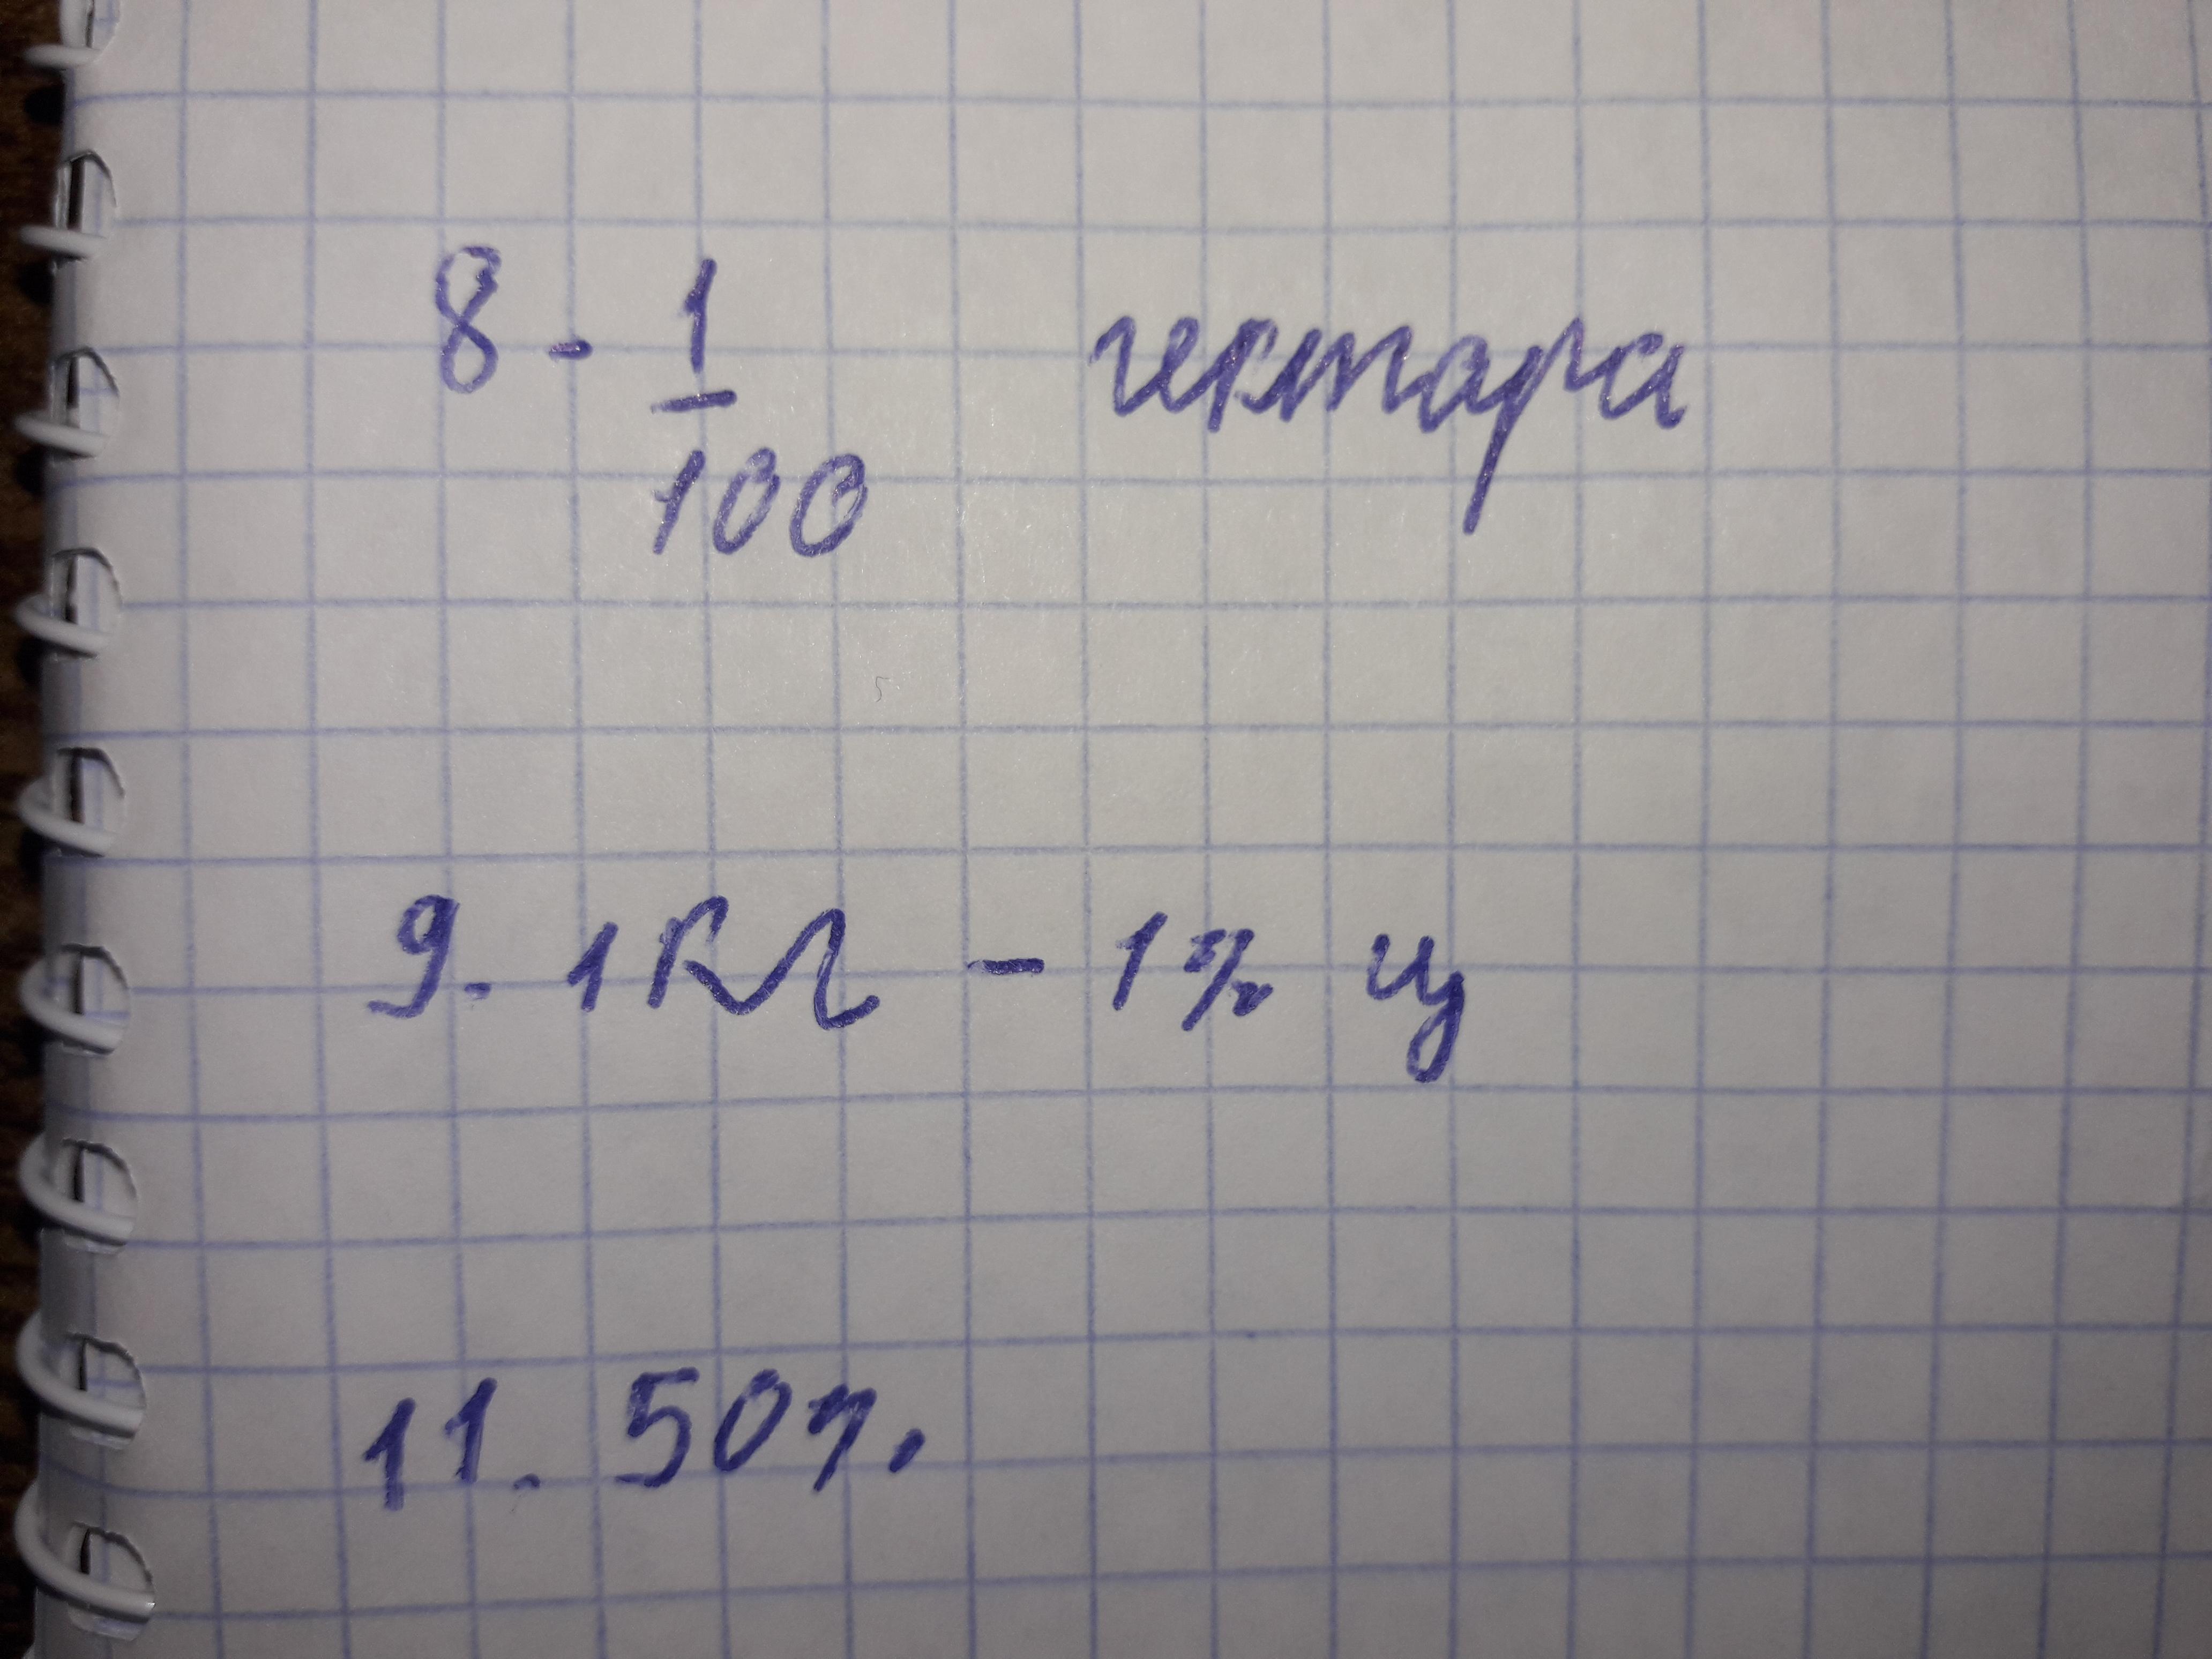 8 - 1/100 гектара
9. 1 кг - 1% ц
11. 50%.